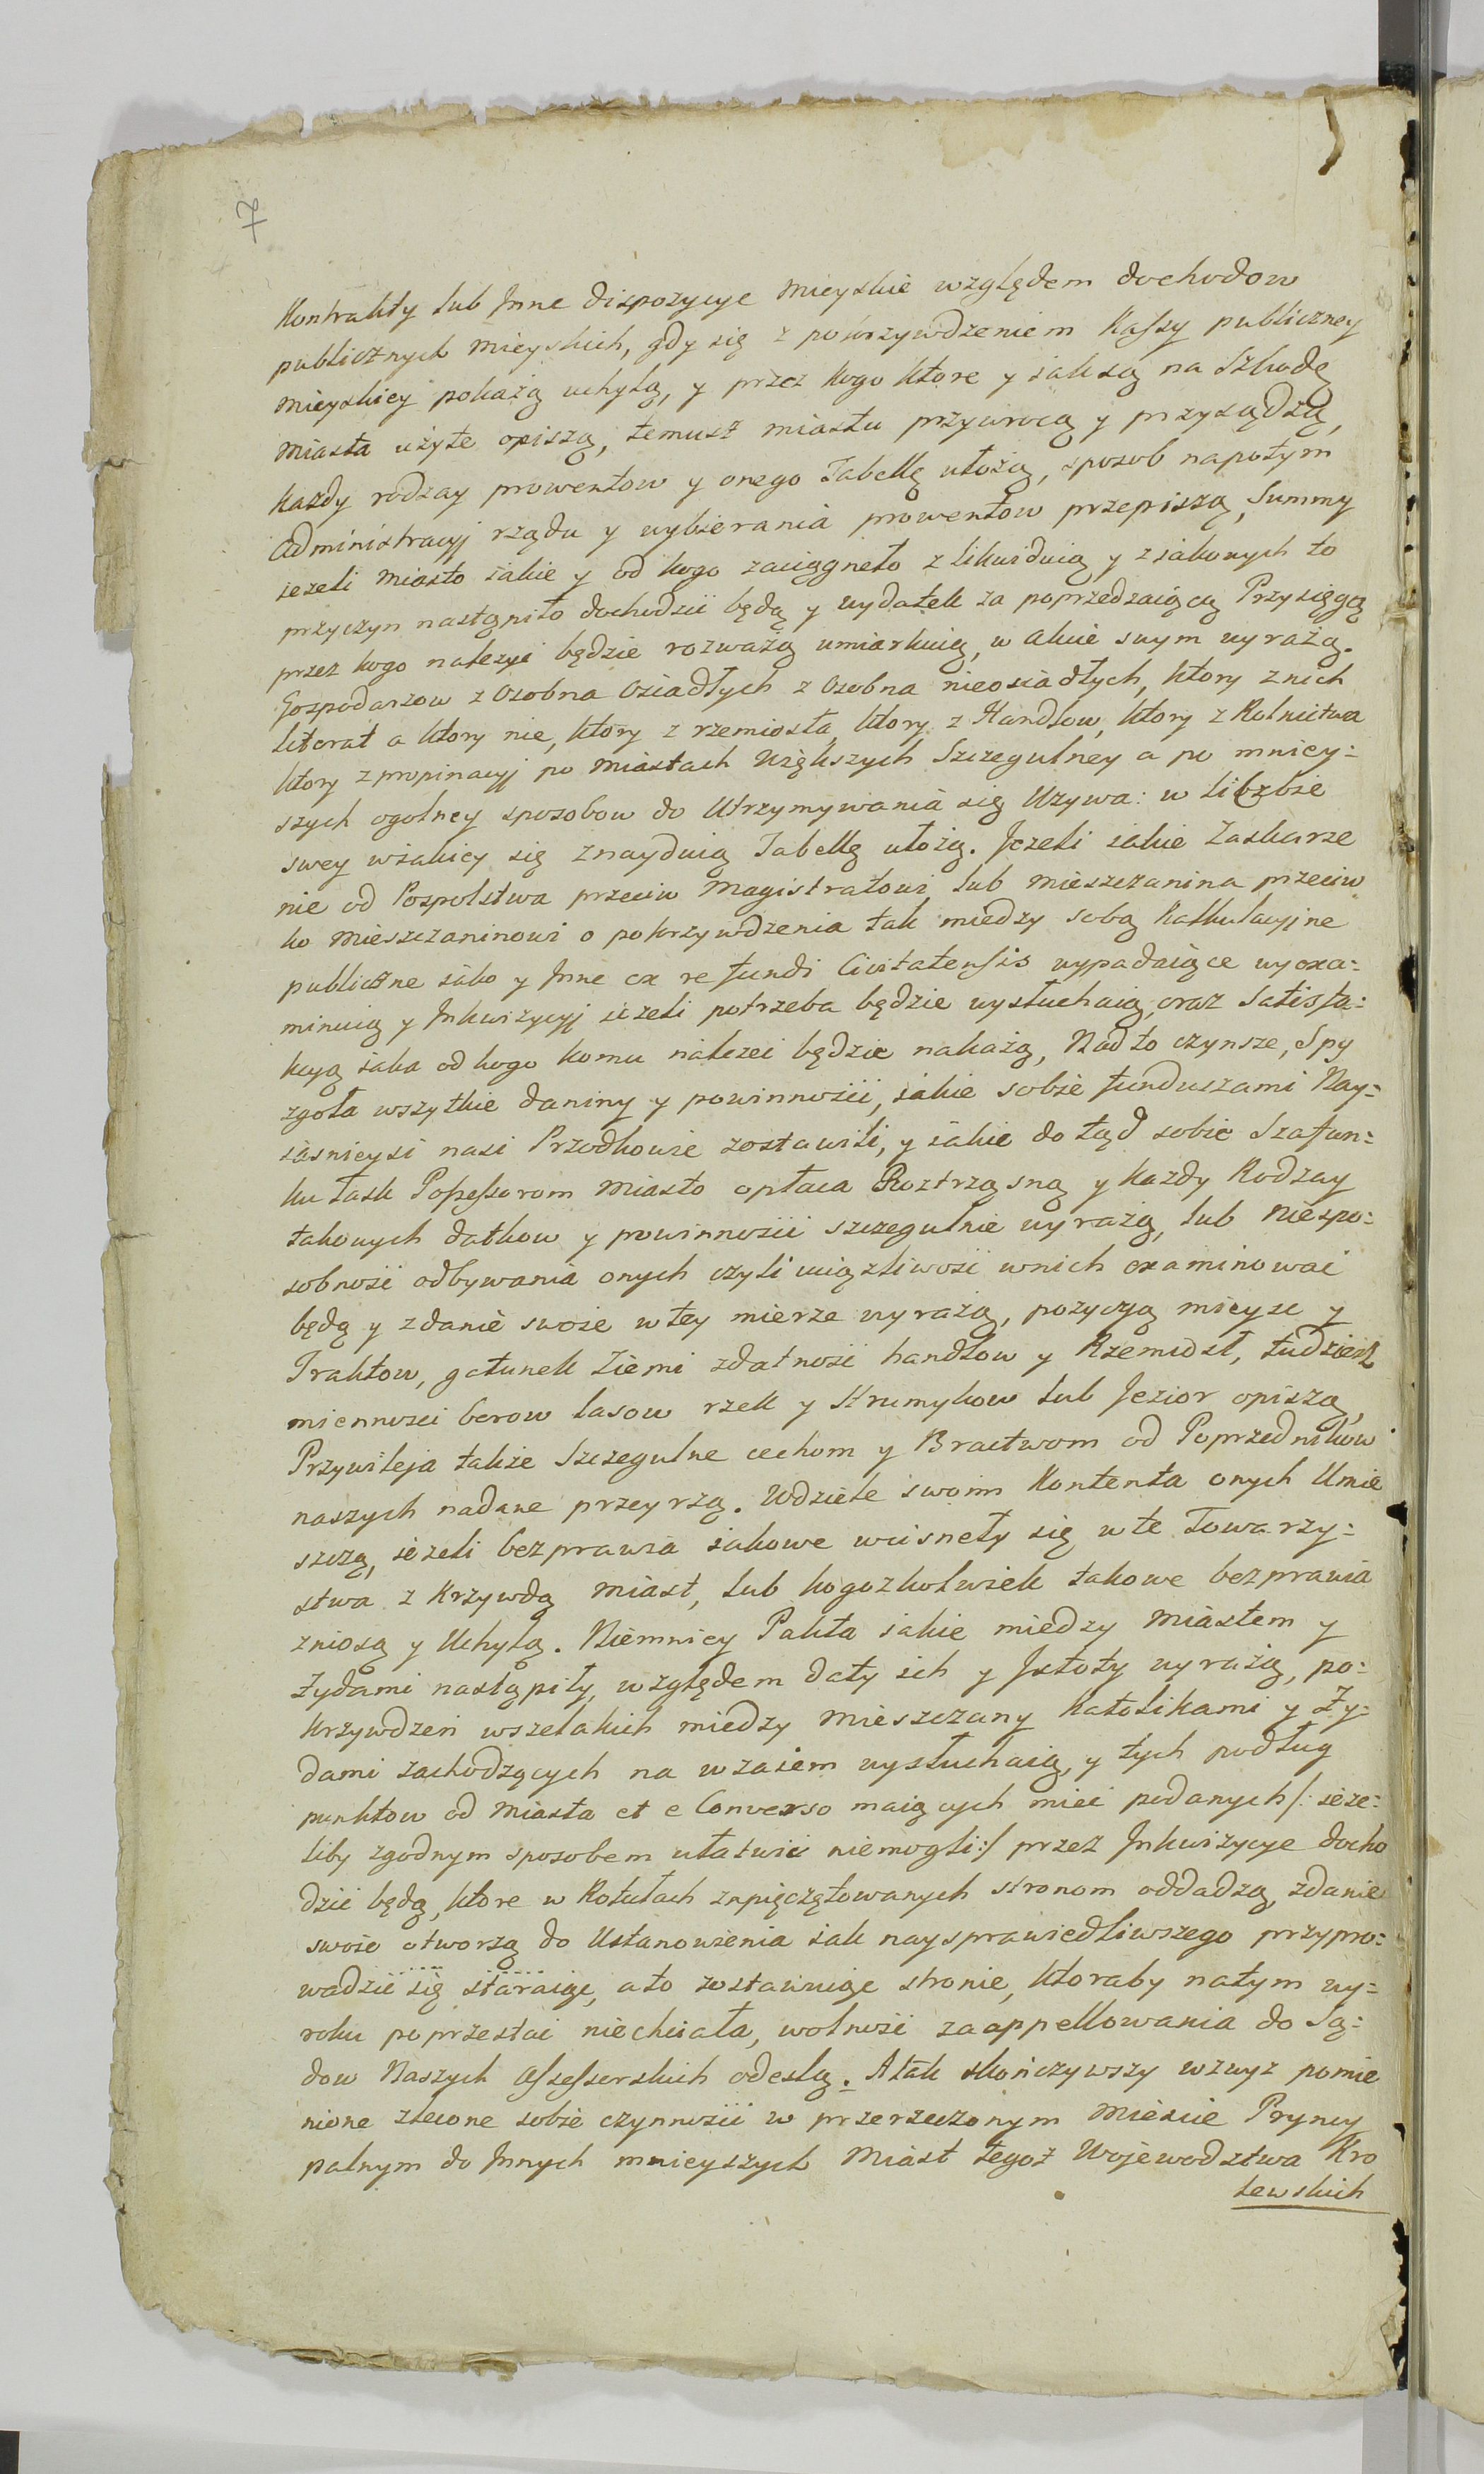 7
Kontrakty lub Jnne dispozycye Mieyskie względem dochodow
publicznych mieyskich, gdy się z pokrzywdzeniem Kassy publiczney
Mieyskiey pokażą uchylą, y przez kogo ktore y iak są na Szkodę
Miasta użyte opiszą, temusz miastu przywrocą y przysądzą,
Kazdy rodzay prowentow y onego Tabellę ułożą, sposob napotym
administracyj rządu y wybierania prowentow przepiszą, Summy
ieżeli Miasto iakie y od kogo zaciągneło zlikwiduią y z iakowych to
przyczyn nastąpiło dochodzić będą y wydatek za poprzedzaiącą Przysięgą
przez kogo nalezyć będzie rozważą umiarkuią, w akcie swym wyrażą.
Gospodarzow z osobna Osiadłych z osobna nieosiadłych, ktory z nich
literat a ktory nie, ktory z rzemiosła, ktory z Handlow, ktory z Rolnictwa
ktory z propinacyj po Miastach Większych Szczegulney a po mniey:
szych ogolney sposobow do Utrzymywania się Używa: w liczbie
swey wiakiey się znayduią Tabellę ułożą. Jezeli iakie Zaskarze
nie od Pospolstwa przeciw Magistratowi, lub mieszczanina przeciw
ko Mieszczaninowi o pokrzywdzenia tak między sobą Kalkulacyjne
publiczne iako y Jnne ex re fundi Civitatensis wypadaiące wyexa:
minuią y Jnkwizycyj ieżeli potrzeba będzie wysłuchaią, oraz Satisfa:
kcyą iaka od kogo komu należeć będzie nakażą, Nadto czynsze, Spy
zgoła wszytkie daniny y powinności, iakie sobie funduszami Nay:
iaśnieysi nasi Przodkowie zostawili, y iakie do tąd sobie Szafun:
ku łask Possessorom Miasto opłaca Roztrząsną y Kazdy Rodzay
takowych datkow y powinności szczegulnie wyrażą, lub niespo:
sobność odbywania onych czyli uciązliwość wnich examinować
będą y zdanie swoie w tey mierze wyrażą, pozycyą mieysc y
Traktow, gatunek Ziemi zdatność handlow y Rzemiosł, tudzież
miennosci borow lasow rzek y Strumykow lub Jezior opiszą,
Przywileja także Szczegulne cechom y Bractwom od Poprzednikow
naszych nadane przeyrzą. Wdziele swoim Kontenta onych Umie
szczą, ieżeli bezprawia iakowe wcisneły się w te Towarzy:
stwa z Krzywdą Miast, lub kogożkolwiek takowe bezprawia
zniosą y Uchylą. Niemniey Pakta iakie między Miastem y
Żydami nastąpiły, względem daty ich y Jstoty wyrażą, po:
krzywdzeń wszelakich między Mieszczany Katolikami y Ży:
dami zachodzących na wzaiem wysłuchaią, y tych podług
punktow od Miasta et e Converso maiących mieć podanych /: ieże:
liby zgodnym sposobem ułatwić niemogli :/ przez Jnkwizycye docho
dzić będą, ktore w Rotułach zapięczętowanych stronom oddadzą, zdanie
swoie otworzą do Ustanowienia iak naysprawiedliwszego przypro:
wadzić się staraiąc, a to zostawuiąc stronie, ktoraby natym wy:
roku poprzestać niechciała, wolność zaappellowania do Są:
dow Naszych Assessorskich odeslą. A tak skończywszy wzwyż pomie
nione zlecone sobie czynności w przerzeczonym Mieście Pryncy
palnym do Jnnych mnieyszych Miast tegoż Wojewodztwa Kro
lewskich